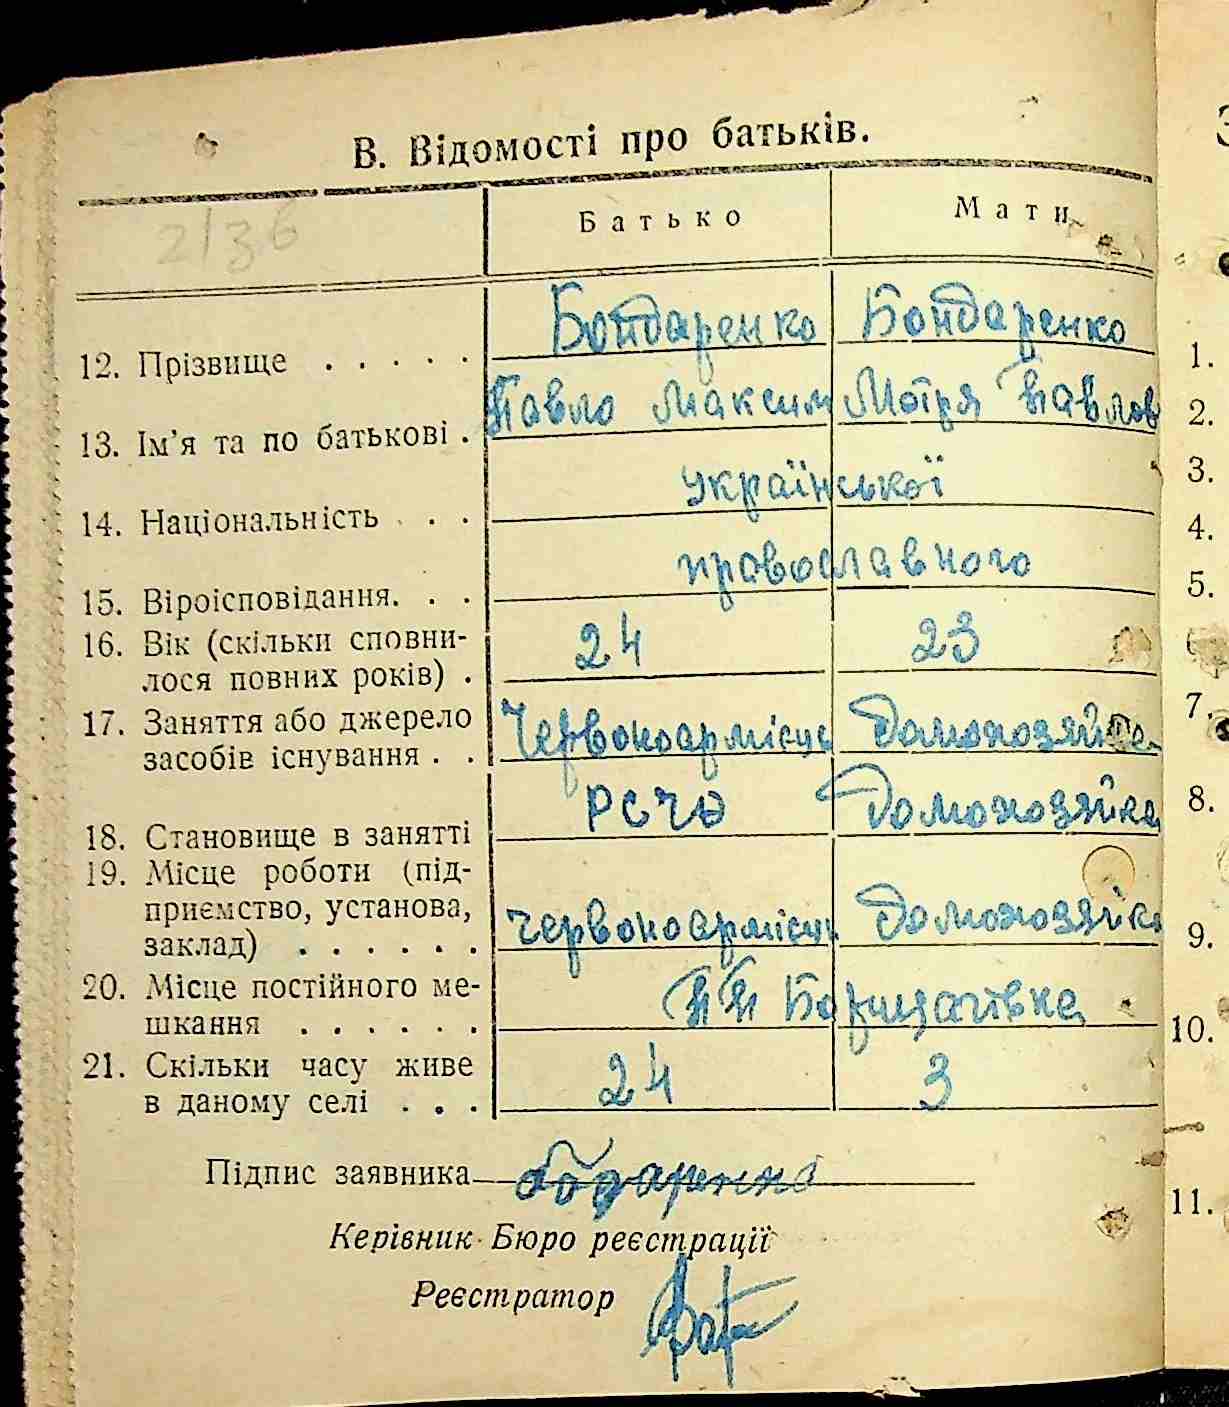 В. Відомості про батьків.
Батько Мати
2/36
12. Прізвище . . . . . Бондаренко Бондаренко
13. Ім’я та по батькові . Павло Максим Мотря Павлов
14. Національність . . . української
15. Віроісповідання. . . православного
16. Вік (скільки сповни-
лося повних років) . 24 23
17. Заняття або джерело
засобів існування . . Червоноармієць Домохозяйка
18. Становище в занятті РСЧА Домохозяйка
19. Місце роботи (під-
приємство, установа,
заклад) . . . . . . Червоноармієць Домохозяйка
20. Місце постійного ме-
шкання . . . . . . Борщагівка
21. Скільки часу живе
в даному селі . . . 24 3
Підпис заявника
Керівник Бюро реєстрації
Реєстратор
1.
2.
3.
4.
5.
7.
8.
9.
10.
11.